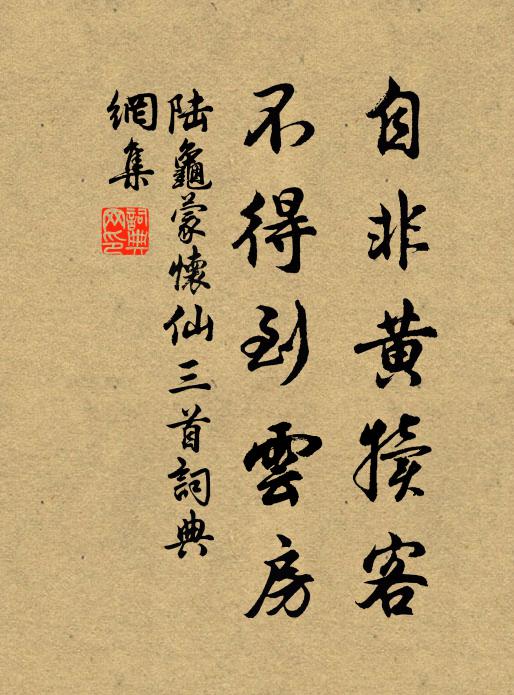 自非黄犢客
不得到雲房
陆龜蒙懷仙三首詞典
網集
詞典
网印